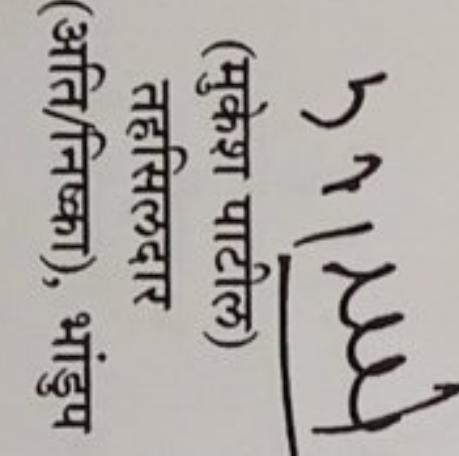 (मुकेश पाटील)
तहसिलदार
(अति/निष्का), भांडुप